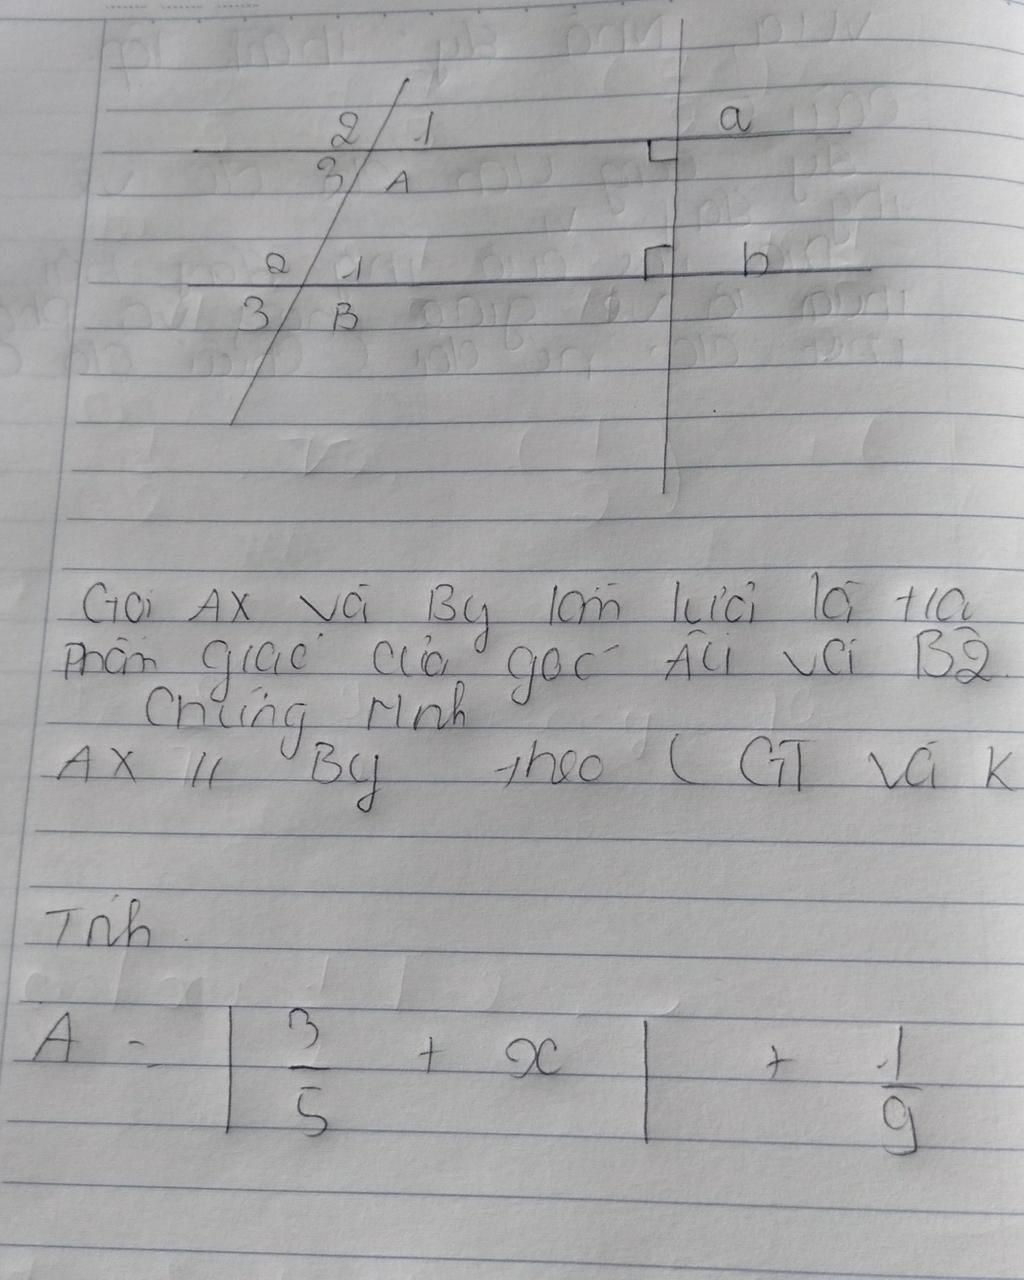 2 1 a
3 A
2 1 b
3 B
Gọi AX và By lần lượt là tia
phân giác của góc Â4 và B̂2
Chứng Minh
AX // By theo ( GT và K
Tính
A = | 3/5 + x | + 1/9